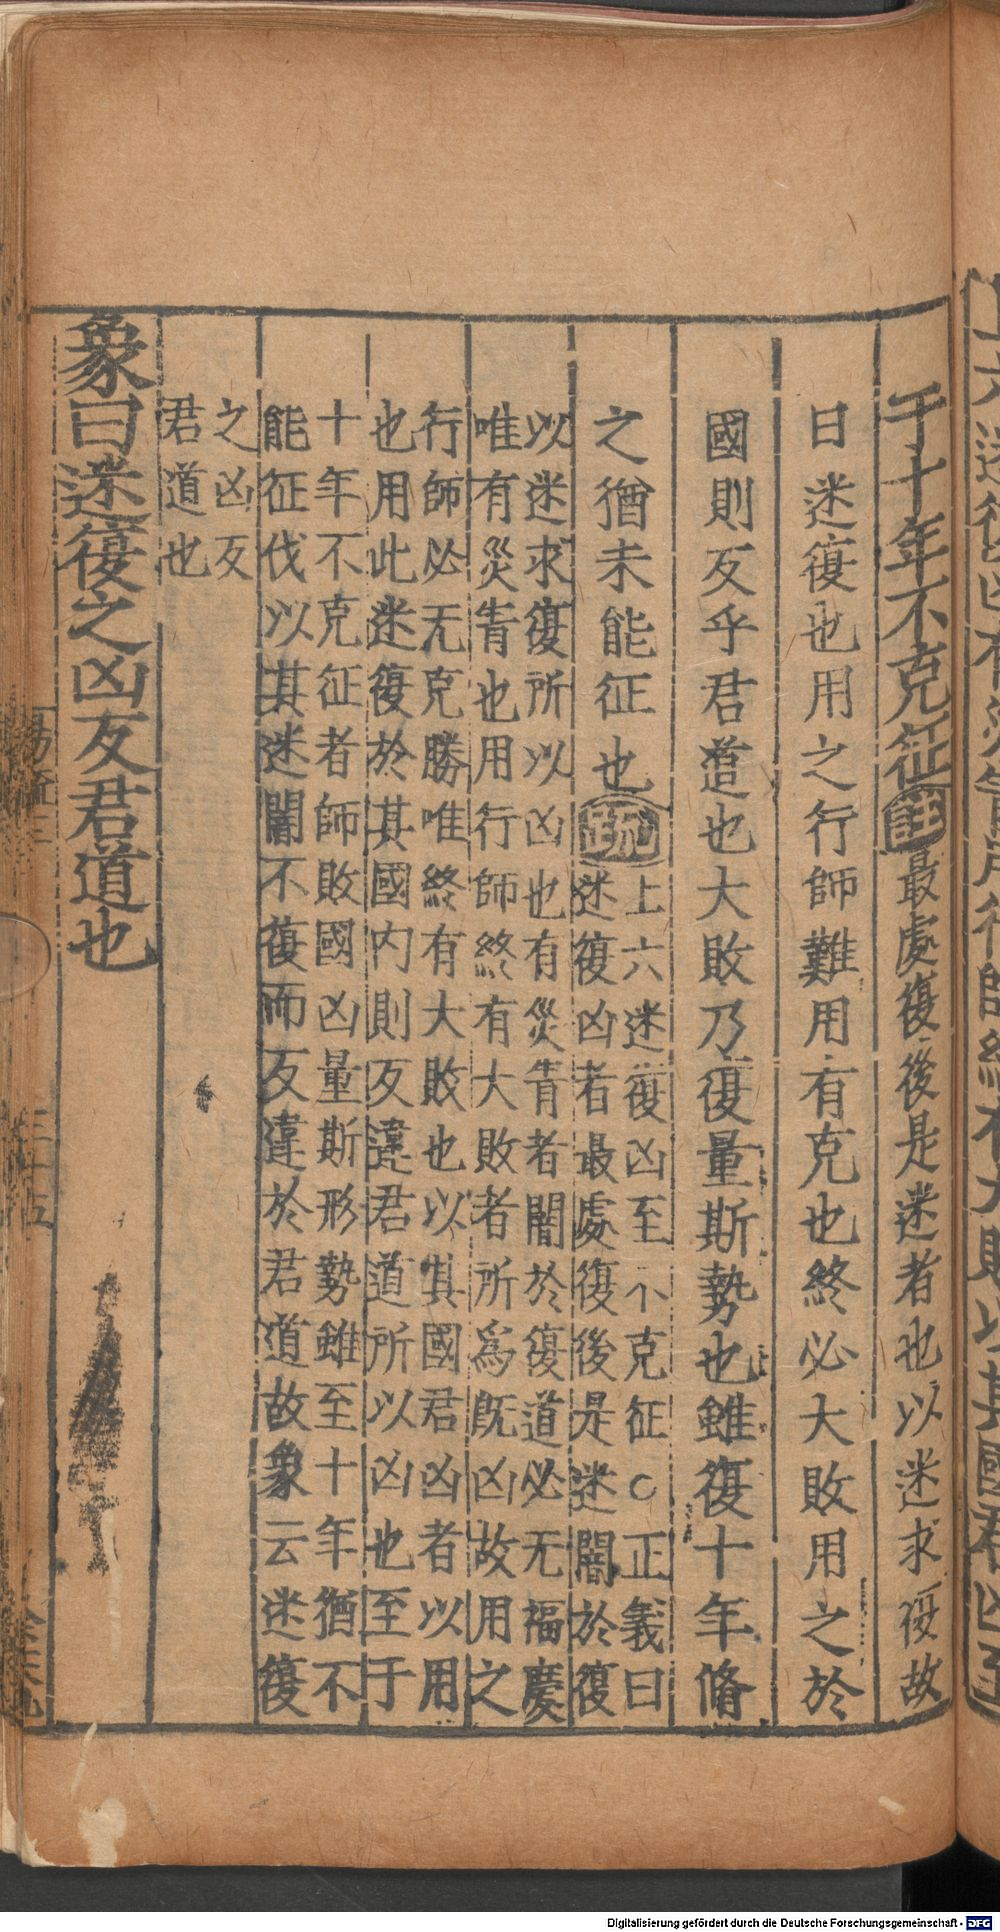 于十年不克征註最處復後是迷者也以迷求復故
曰迷復也用之行師難用有克也終必大敗用之於
國則反乎君道也大敗乃復量斯勢也雖復十年脩
之猶未能征也疏上六迷復凶至不克征○正義曰
迷復凶者最處復後是迷闇於復
以迷求復所以凶也有災眚者闇於復道必无福慶
唯有災眚也用行師終有大敗者所爲既凶故用之
行師必无克勝唯終有大敗也以其國君凶者以用
也用此迷復於其國内則反違君道所以凶也至于
十年不克征者師敗國凶量斯形勢雖至十年猶不
能征伐以其迷闇不復而反違於君道故象云迷復
之凶反
君道也
象曰迷復之凶反君道也
Digitalisierung gefördert durch die Deutsche Forschungsgemeinschaft - DFG